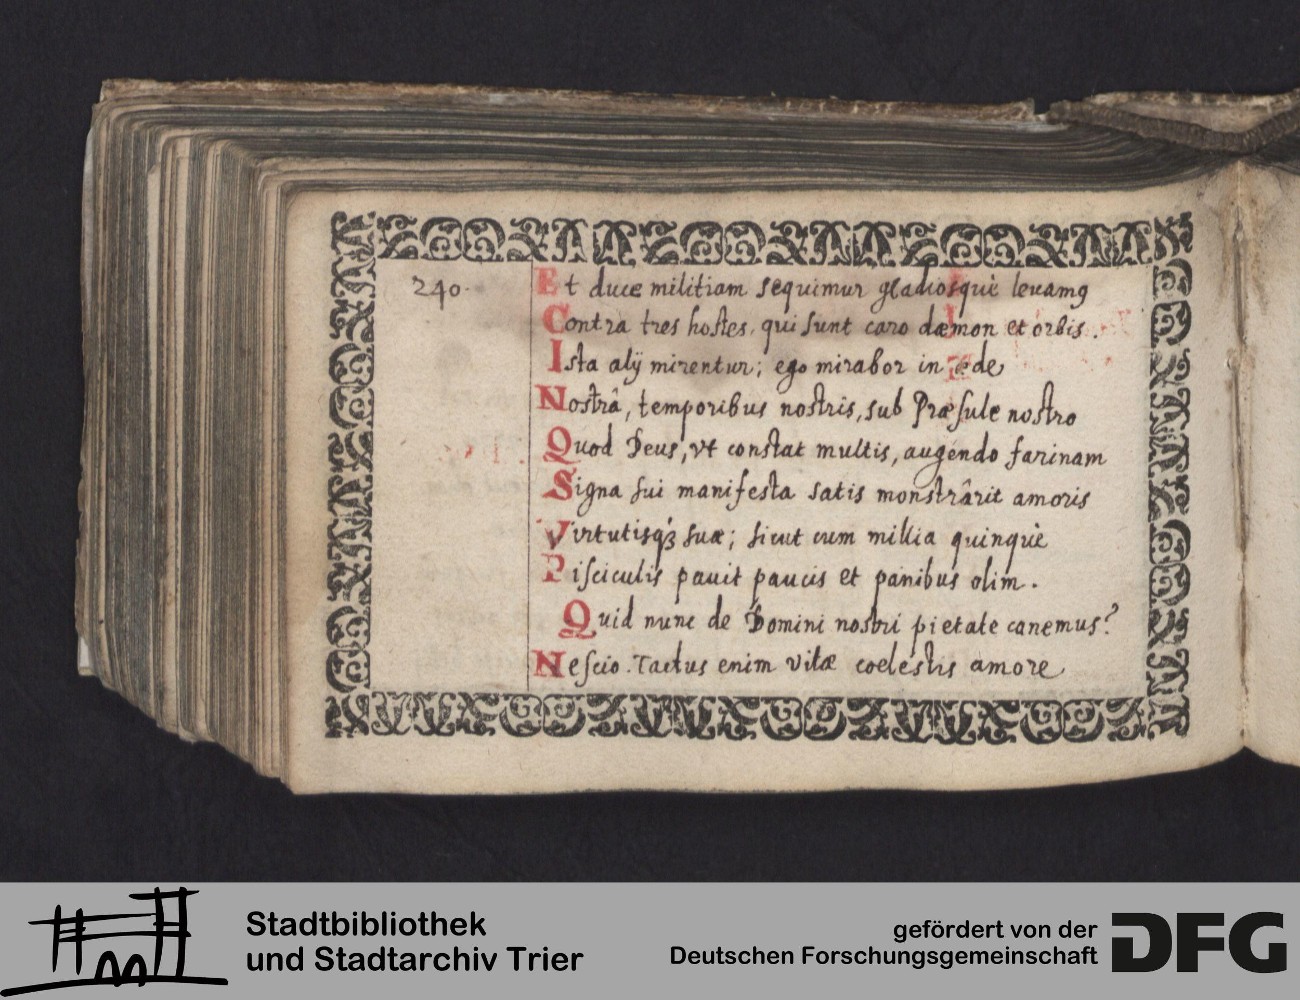 240.
Et duce militiam sequimur gladiosquè leuamq
Contra tres hostes, qui sunt caro dæmon et orbis.
Ista alÿ mirentur; ego mirabor in æde
Nostrâ, temporibus nostris, sub Præsule nostro
Quod Deus, vt constat multis, augendo farinam
Signa sui manifesta satis monstrârit amoris
Virtutisqȝ suæ; sicut cum millia quinquè
Pisciculis pauit paucis et panibus olim.
Quid nunc de Domini nostri pietate canemus?
Nescio. Tactus enim vitæ coelestis amore
Stadtbibliothek
und Stadtarchiv Trier
gefördert von der
Deutschen Forschungsgemeinschaft
DFG